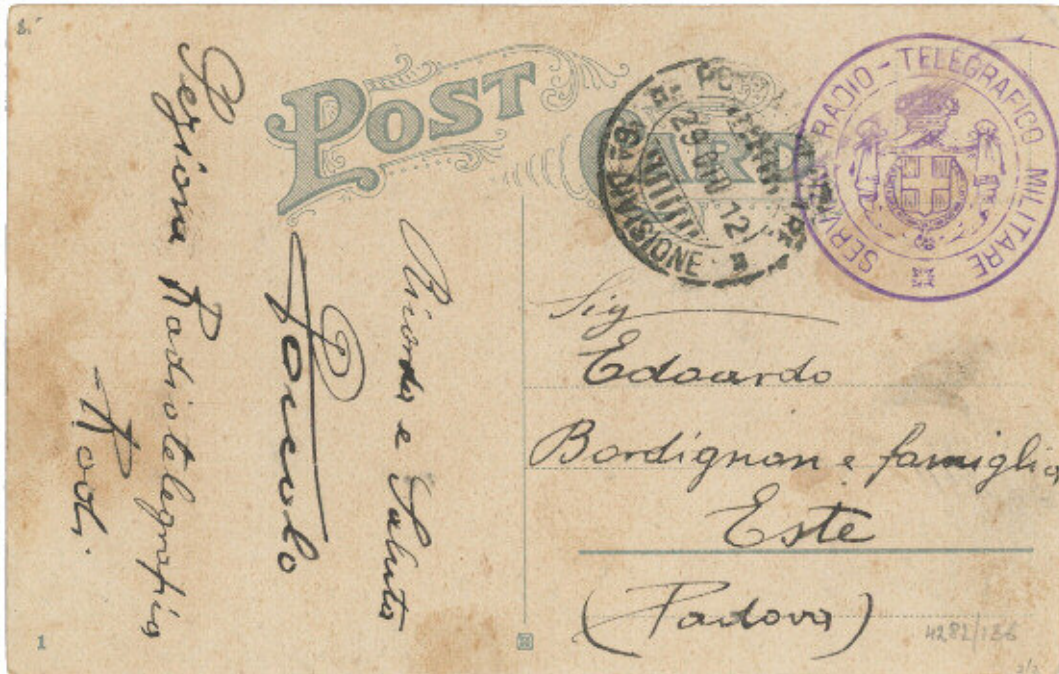 POST CARD
SERVIZIO RADIO-TELEGRAFICO MILITARE
POSTA MILITARE
29 12
6ª DIVISIONE
Sig
Edoardo
Bordignon e famiglia
Este
(Padova)
Ricordo e Saluti
Sezione Radiotelegrafica
Rodi.
1
4282/136
2/2